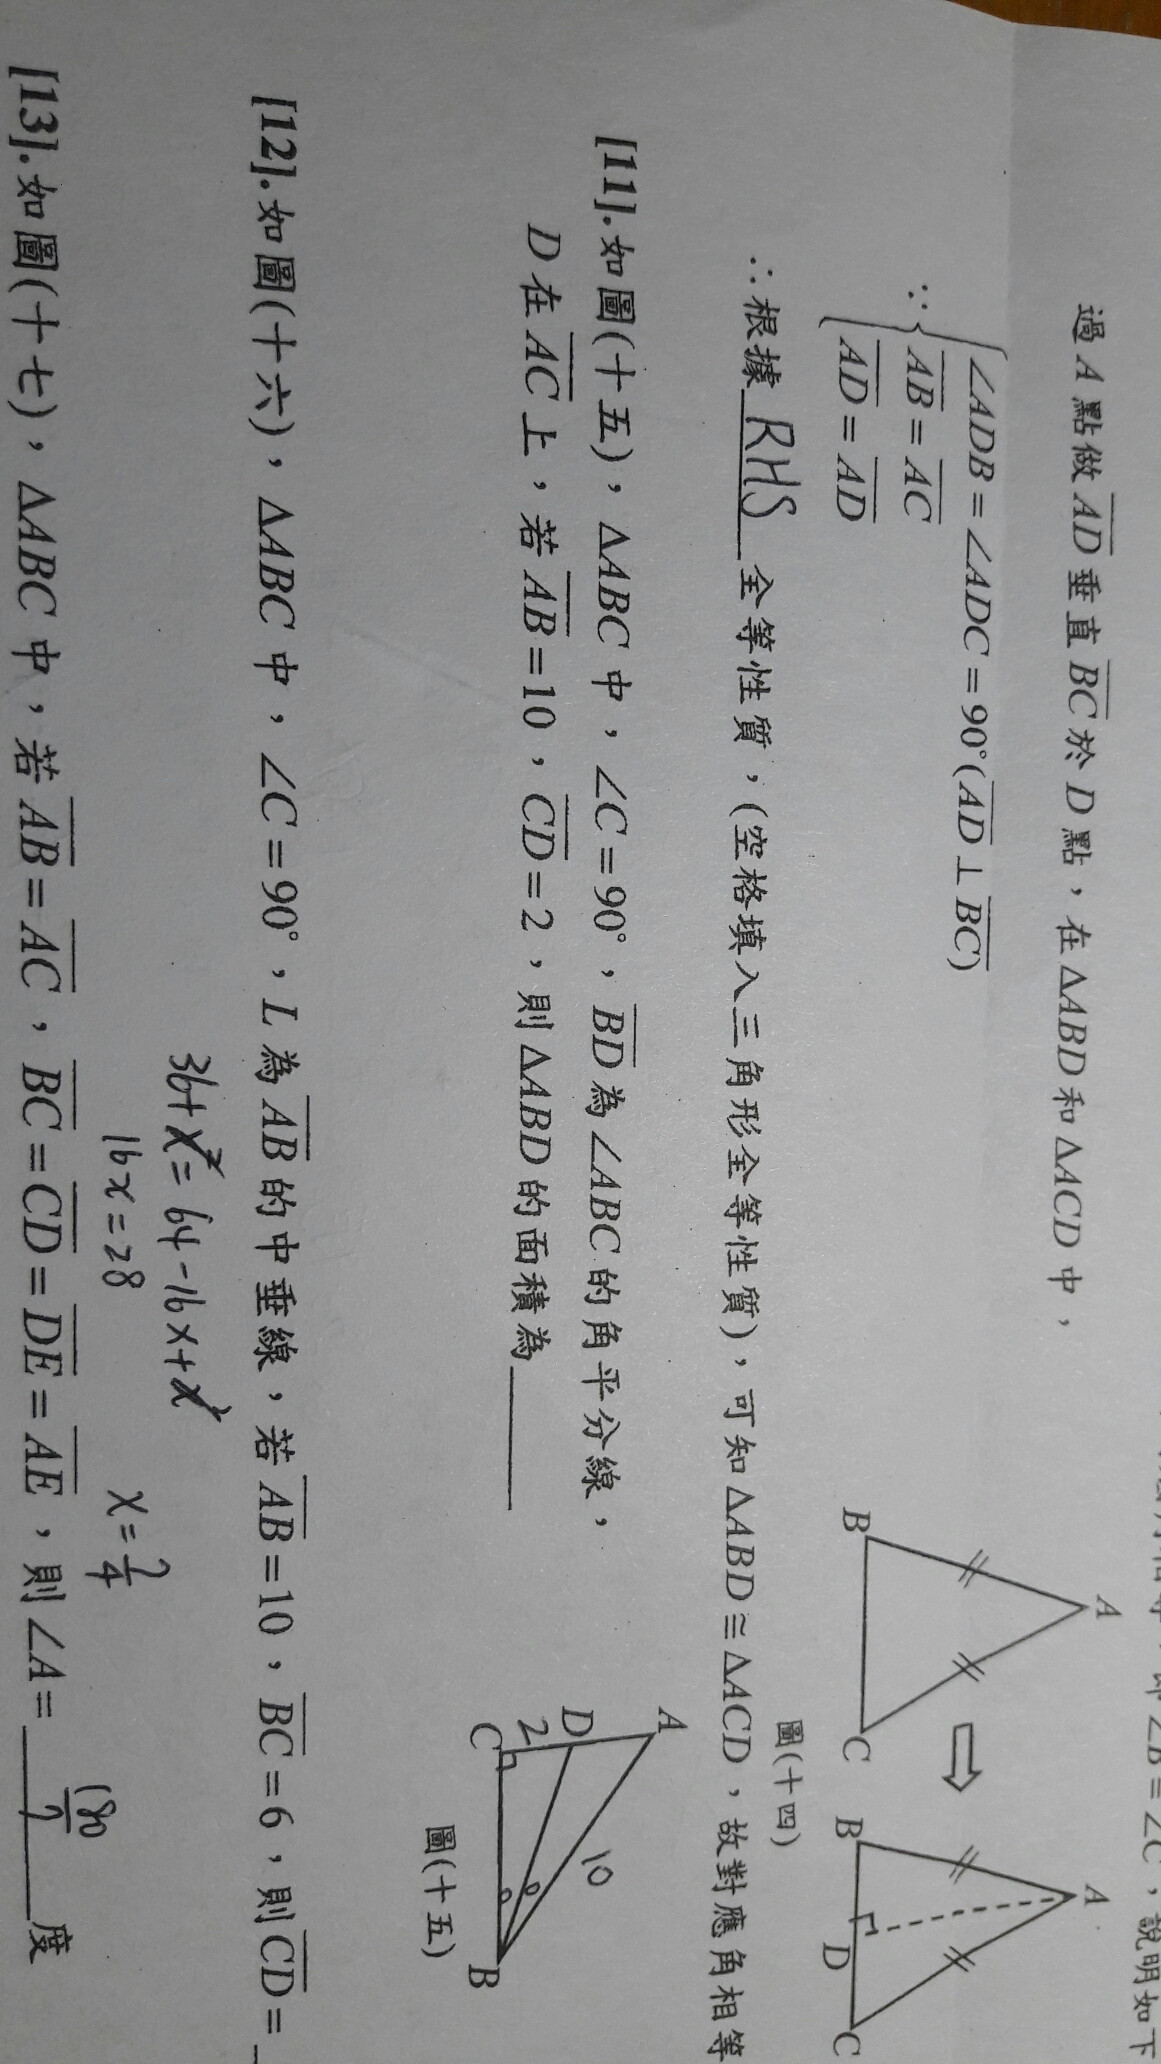 說明如下
過A點做AD垂直BC於D點，在ΔABD和ΔACD中，
∵{∠ADB=∠ADC=90°(AD⊥BC)
AB=AC
AD=AD
A
B
C
⇨
A
B
D
C
圖(十四)
∴根據 RHS 全等性質，(空格填入三角形全等性質)，可知ΔABD≅ΔACD，故對應角相等
[11].如圖(十五)，ΔABC中，∠C=90°，BD為∠ABC的角平分線，
D在AC上，若AB=10，CD=2，則ΔABD的面積為
A
D
2
C
10
B
圖(十五)
[12].如圖(十六)，ΔABC中，∠C=90°，L為AB的中垂線，若AB=10，BC=6，則CD=
36+x²=64-16x+x²
16x=28
x=7/4
[13].如圖(十七)，ΔABC中，若AB=AC，BC=CD=DE=AE，則∠A= 180/7 度